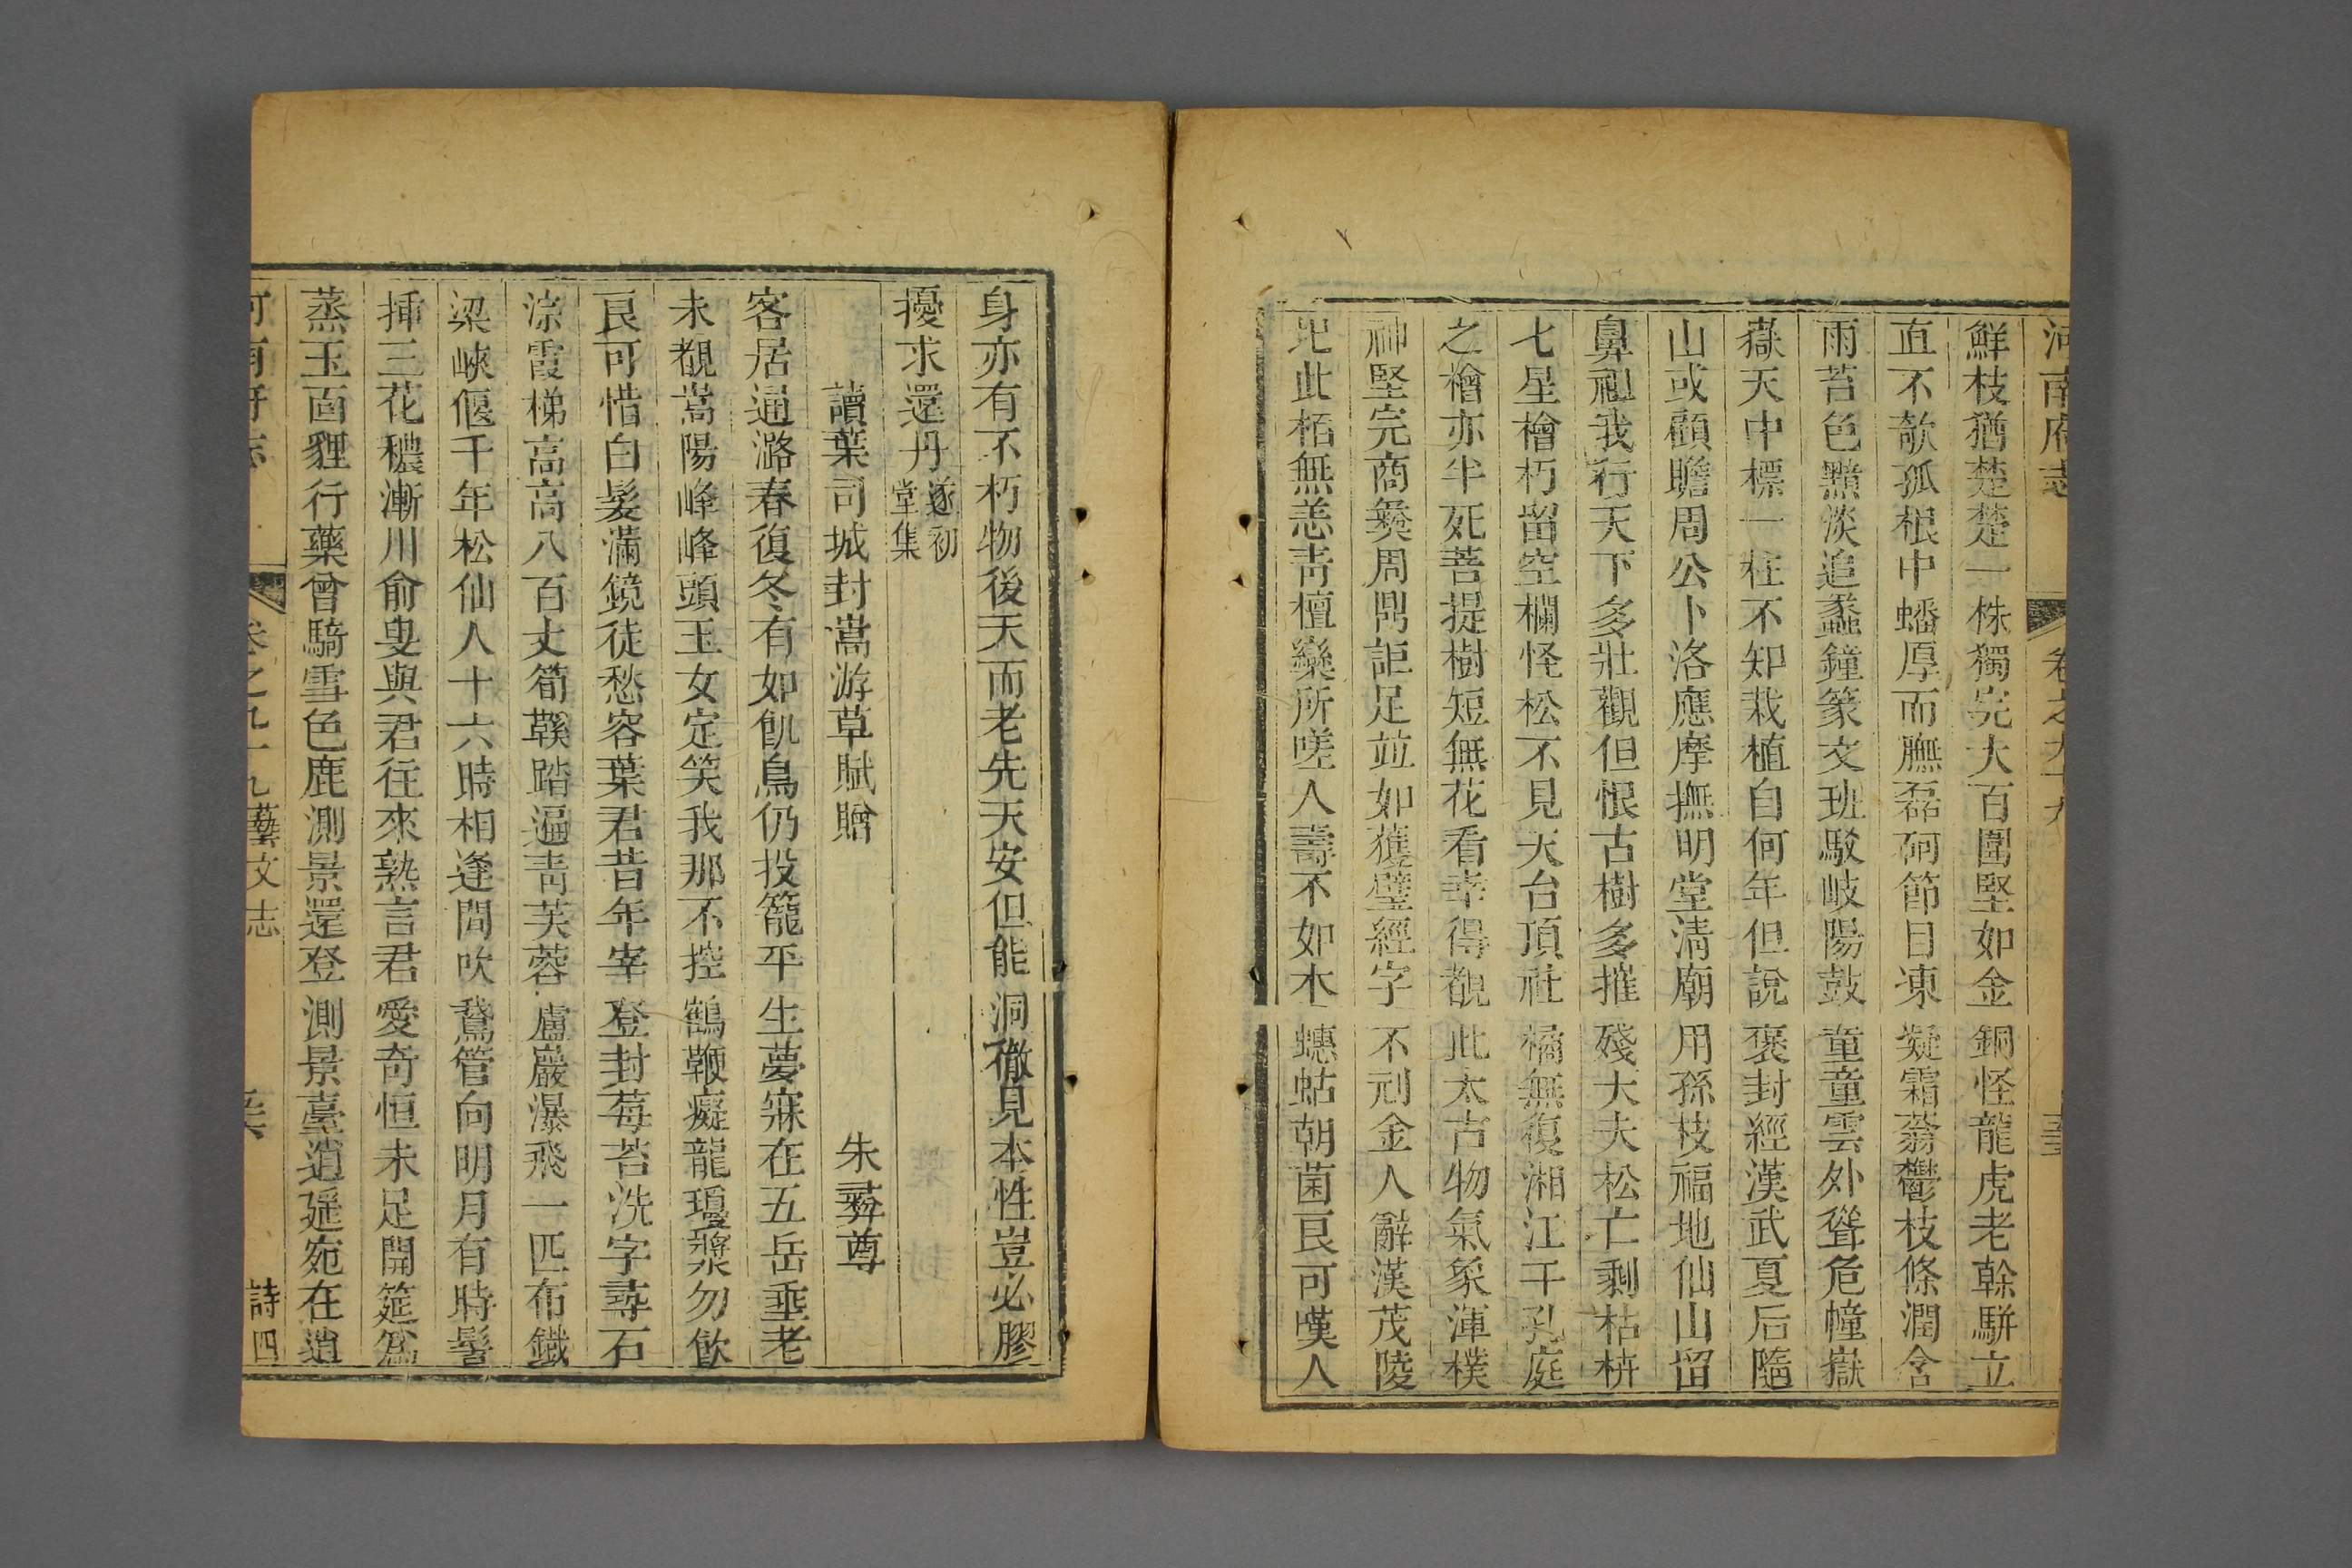 河南府志 卷之九十九
鮮枝猶楚楚一株獨完大百圍堅如金銅怪龍虎老榦駢立
直不欹孤根中蟠厚而膴磊砢節目凍凝霜蓊鬱枝條潤含
雨苔色黯淡追蠡鐘篆文班駁岐陽鼓童童雲外聳危幢嶽
嶽天中標一柱不知栽植自何年但說褒封經漢武夏后隨
山或顧瞻周公卜洛應摩撫明堂清廟用孫枝福地仙山留
鼻祖我行天下多壯觀但恨古樹多摧殘大夫松亡剩枯枿
七星檜朽留空欄怪松不見天台頂社橘無復湘江干孔庭
之檜亦半死菩提樹短無花看幸得覩此太古物氣象渾樸
神堅完商彝周鼎詎足竝如蕉璧經字不刓金人辭漢茂陵
圯此栢無恙靑檀欒所嗟人壽不如木蟪蛄朝菌良可嘆人
身亦有不朽物後天而老先天安但能洞徹見本性豈必膠
擾求還丹 遂初堂集
讀葉司城封嵩游草賦贈 朱彝尊
客居通潞春復冬有如飢鳥仍投籠平生夢寐在五岳垂老
未覩嵩陽峰峰頭玉女定笑我那不控鶴鞭癡龍瓊漿勿飲
良可惜白髮滿鏡徒愁容葉君昔年宰登封莓苔洗字尋石
淙霞梯高高八百丈筍鞵踏遍靑芙蓉盧巖瀑飛一匹布鐵
梁峽偃千年松仙人十六時相逢間吹鵞管向明月有時髻
揷三花穠漸川俞叟與君往來熟言君愛奇恒未足開筵爲
蒸玉面貍行藥曾騎雪色鹿測景還登測景臺逍遥宛在逍
河南府志 卷之九十九 藝文志 詩四